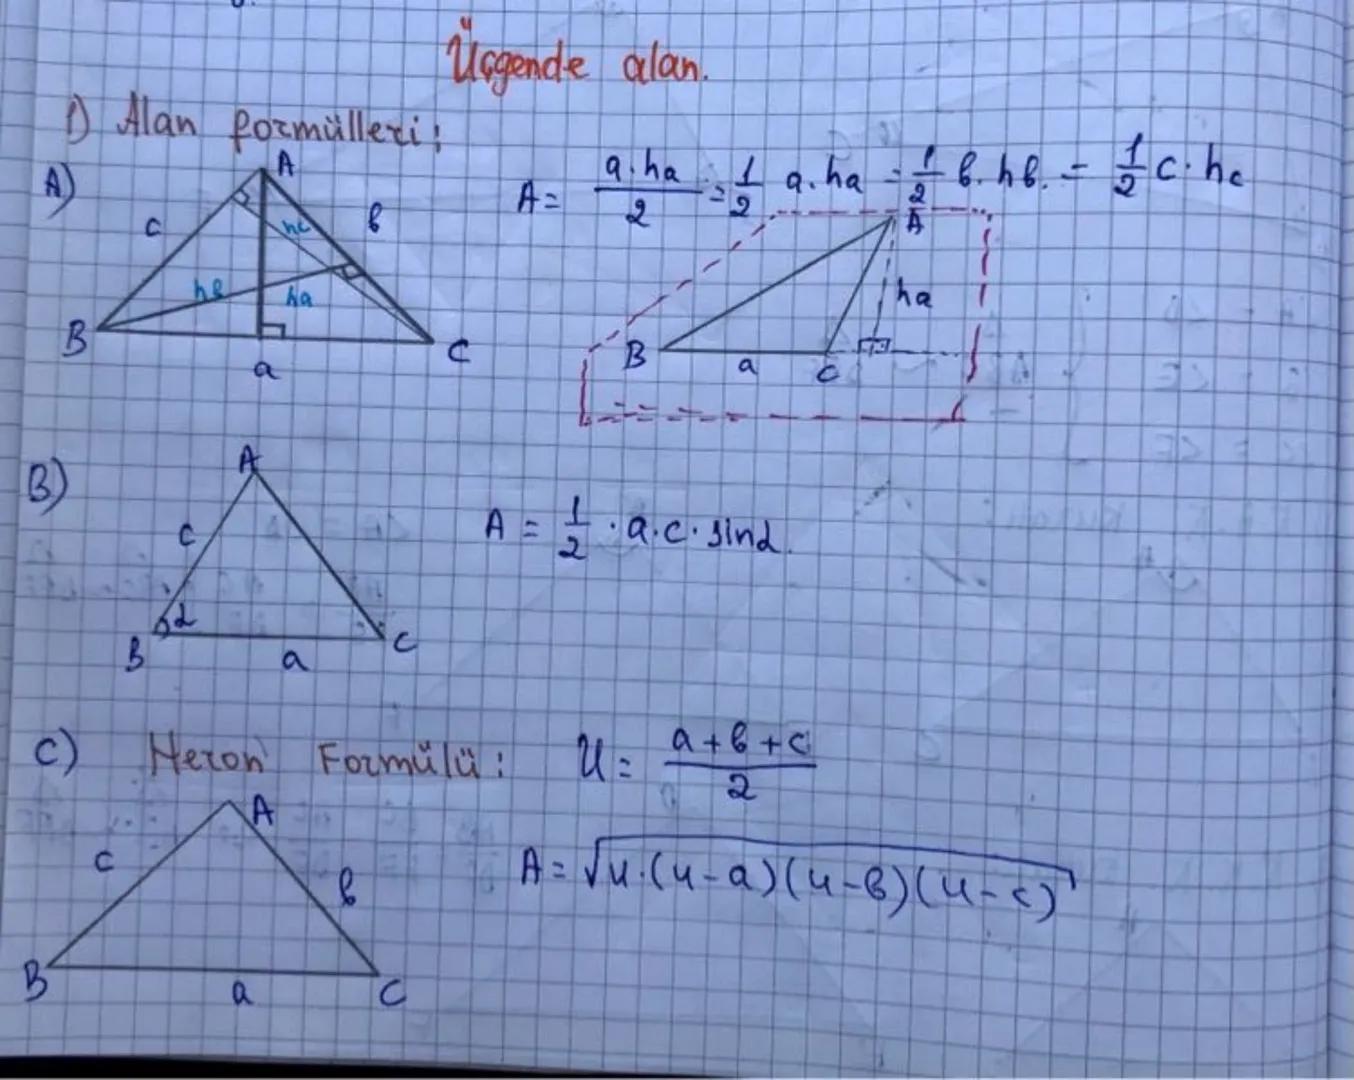 Üçgende alan.
1) Alan formülleri:
A)
A
c
hc
b
hb
ha
B
a
C
A = a.ha/2 = 1/2 a.ha = 1/2 b.hb. = 1/2 c.hc
A
ha
B
a
C
B)
A
c
α
B
a
C
A = 1/2 · a.c. sinα.
C) Heron Formülü: U = a+b+c/2
A
c
b
B
a
C
A = √u.(u-a)(u-b)(u-c)